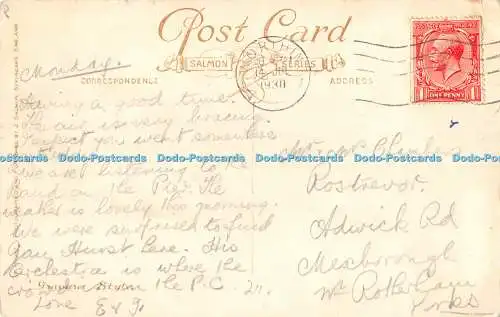 Post Card
SALMON SERIES
CORRESPONDENCE
ADDRESS
WORTHING
1930
ONE PENNY
Monday.
Having a good time.
The air is very bracing.
Expect you went somewhere
Dodo-Postcards Dodo-Postcards Dodo-Postcards Dodo-Postcards Dodo-Postcards
we are listening to the
band on the Pier. The
weather is lovely this morning.
We were surprised to find
Jan Hurst here. His
Orchestra is where the
cross is on the P.C.
Love E &
Mr Mrs Chambers
Rostrevor.
Adwick Rd
Mexborough
Nr Rotherham
Yorks
Dodo-Postcards Dodo-Postcards Dodo-Postcards Dodo-Postcards Dodo-Postcards